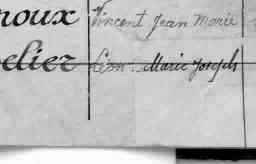 noux Vincent Jean Marie
elier Léon Marie Joseph